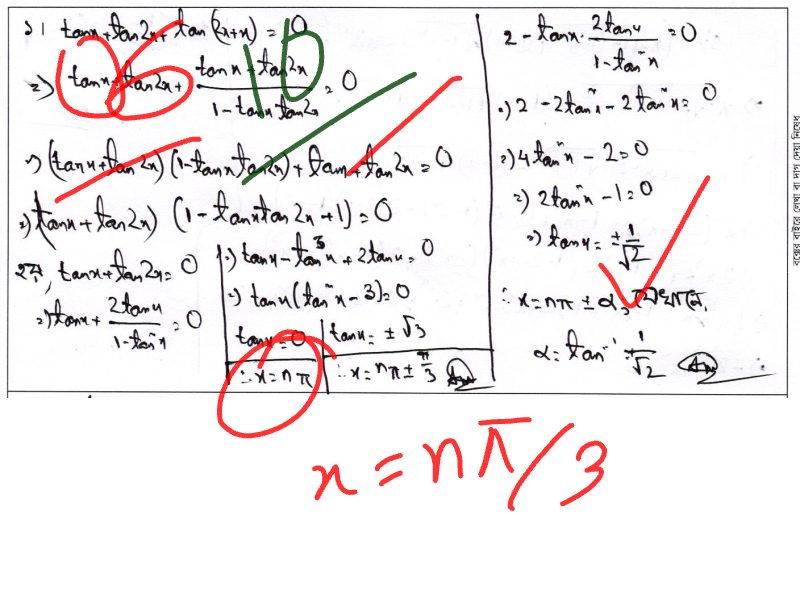 ১। tanx + tan2x + tan(2x+x) = 0
⇒ tanx + tan2x + (tanx + tan2x)/(1 - tanx tan2x) = 0
⇒ (tanx + tan2x) (1 - tanx tan2x) + tanx + tan2x = 0
⇒ (tanx + tan2x) (1 - tanx tan2x + 1) = 0
হয়, tanx + tan2x = 0
⇒ tanx + 2tanx/(1 - tan²x) = 0
⇒ tanx - tan³x + 2tanx = 0
⇒ tanx (tan²x - 3) = 0
tanx = 0
∴ x = nπ
tanx = ± √3
∴ x = nπ ± π/3 Ans
2 - tanx · 2tanx/(1 - tan²x) = 0
⇒ 2 - 2tan²x - 2tan²x = 0
⇒ 4tan²x - 2 = 0
⇒ 2tan²x - 1 = 0
⇒ tanx = ± 1/√2
∴ x = nπ ± α, যেখানে,
α = tan⁻¹ ± 1/√2 Ans
10
x = nπ/3
বক্সের বাইরে লেখা বা দাগ দেয়া নিষেধ